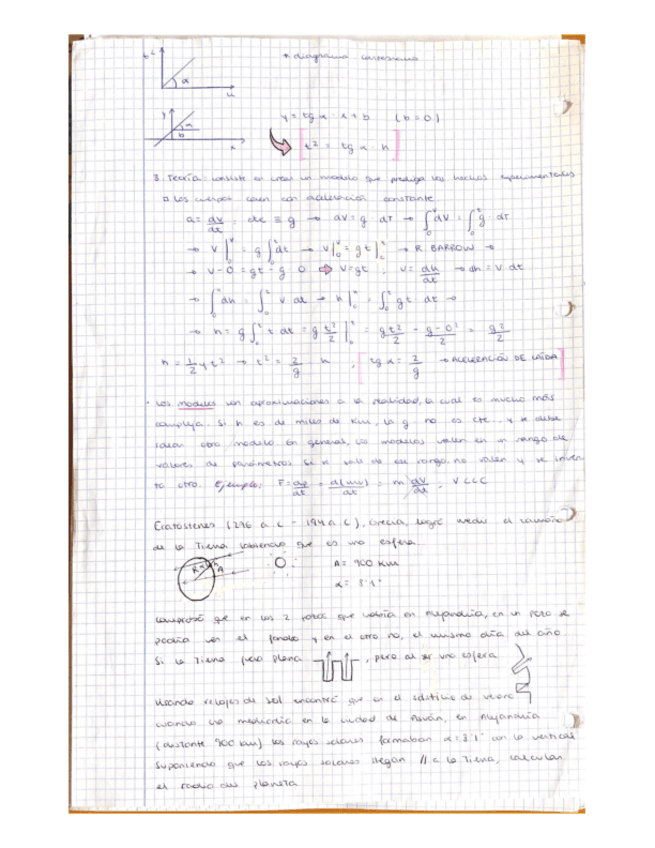 t²
α
h
* diagrama cartesiano
y
α
b
x
y = tg α · x + b (b = 0)
t² = tg α · h
3. Teoría: consiste en crear un modelo que prediga los hechos experimentales
□ Los cuerpos caen con aceleración constante
a = dv/dt ; de ≡ g → dv = g · dt → ∫₀ᵛ dv = ∫₀ᵗ g · dt
→ v|₀ᵛ = g ∫₀ᵗ dt → v|₀ᵛ = g t|₀ᵗ → R. BARROW →
→ v - 0 = gt - g · 0 ⇨ v = gt ; v = dh/dt → dh = v dt
→ ∫₀ʰ dh = ∫₀ᵗ v dt → h|₀ʰ = ∫₀ᵗ gt dt →
→ h = g ∫₀ᵗ t dt = g t²/2 |₀ᵗ = gt²/2 - g · 0²/2 = gt²/2
h = 1/2 g t² → t² = 2/g · h , [ tg α = 2/g → ACELERACIÓN DE CAÍDA ]
· Los modelos son aproximaciones a la realidad, la cual es mucho más
compleja. Si h es de miles de Km, la g no es cte. y se debe
idear otro modelo. En general, los modelos valen en un rango de
valores de parámetros. Si h sale de ese rango no valen y se inven-
ta otro. Ejemplo: F = dp/dt = d(mv)/dt = m dv/dt , v<<c
Eratóstenes (276 a C - 194 a C), Grecia, logró medir el tamaño
de la Tierra sabiendo que es una esfera.
R
A
A = 900 Km
α = 8'1°
Comprobó que en los 2 pozos que había en Alejandría, en un pozo se
podía ver el fondo y en el otro no, el mismo día del año
Si la Tierra fuera plana , pero al ser una esfera
Usando relojes de sol encontró que en el solsticio de verano
cuando era mediodía en la ciudad de Asuán, en Alejandría
(distante 900 km) los rayos solares formaban α = 8'1° con la vertical
Suponiendo que los rayos solares llegan // a la Tierra, calculan
el radio del planeta